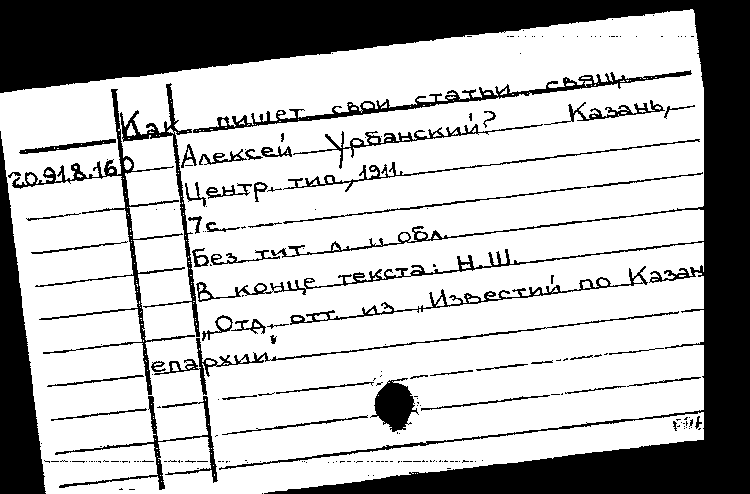 Как пишет свои статьи свящ.
Алексей Урбанский? Казань,
20.918.160
Центр. тип., 1911.
7 с.
Без тит. л. и обл.
В конце текста: Н.Ш.
„Отд. отт. из „Известий по Казан
епархии".